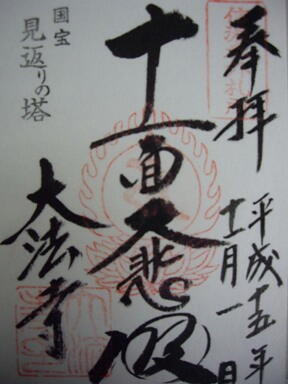 奉拝
平成十五年
十一月一日
十一面大悲殿
国宝
見返りの塔
大法寺